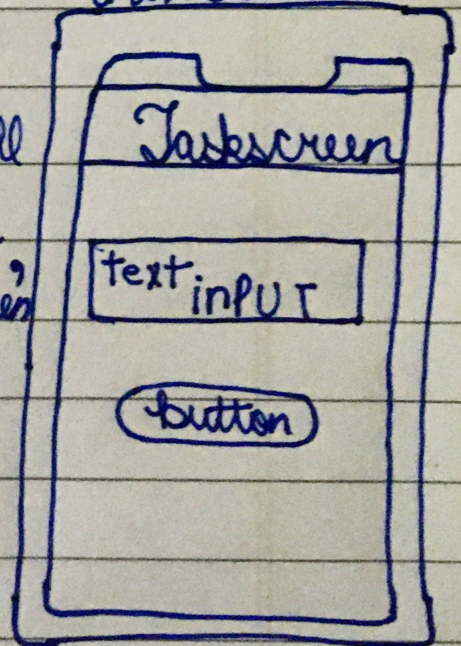 Taskscreen
text inPUT
button